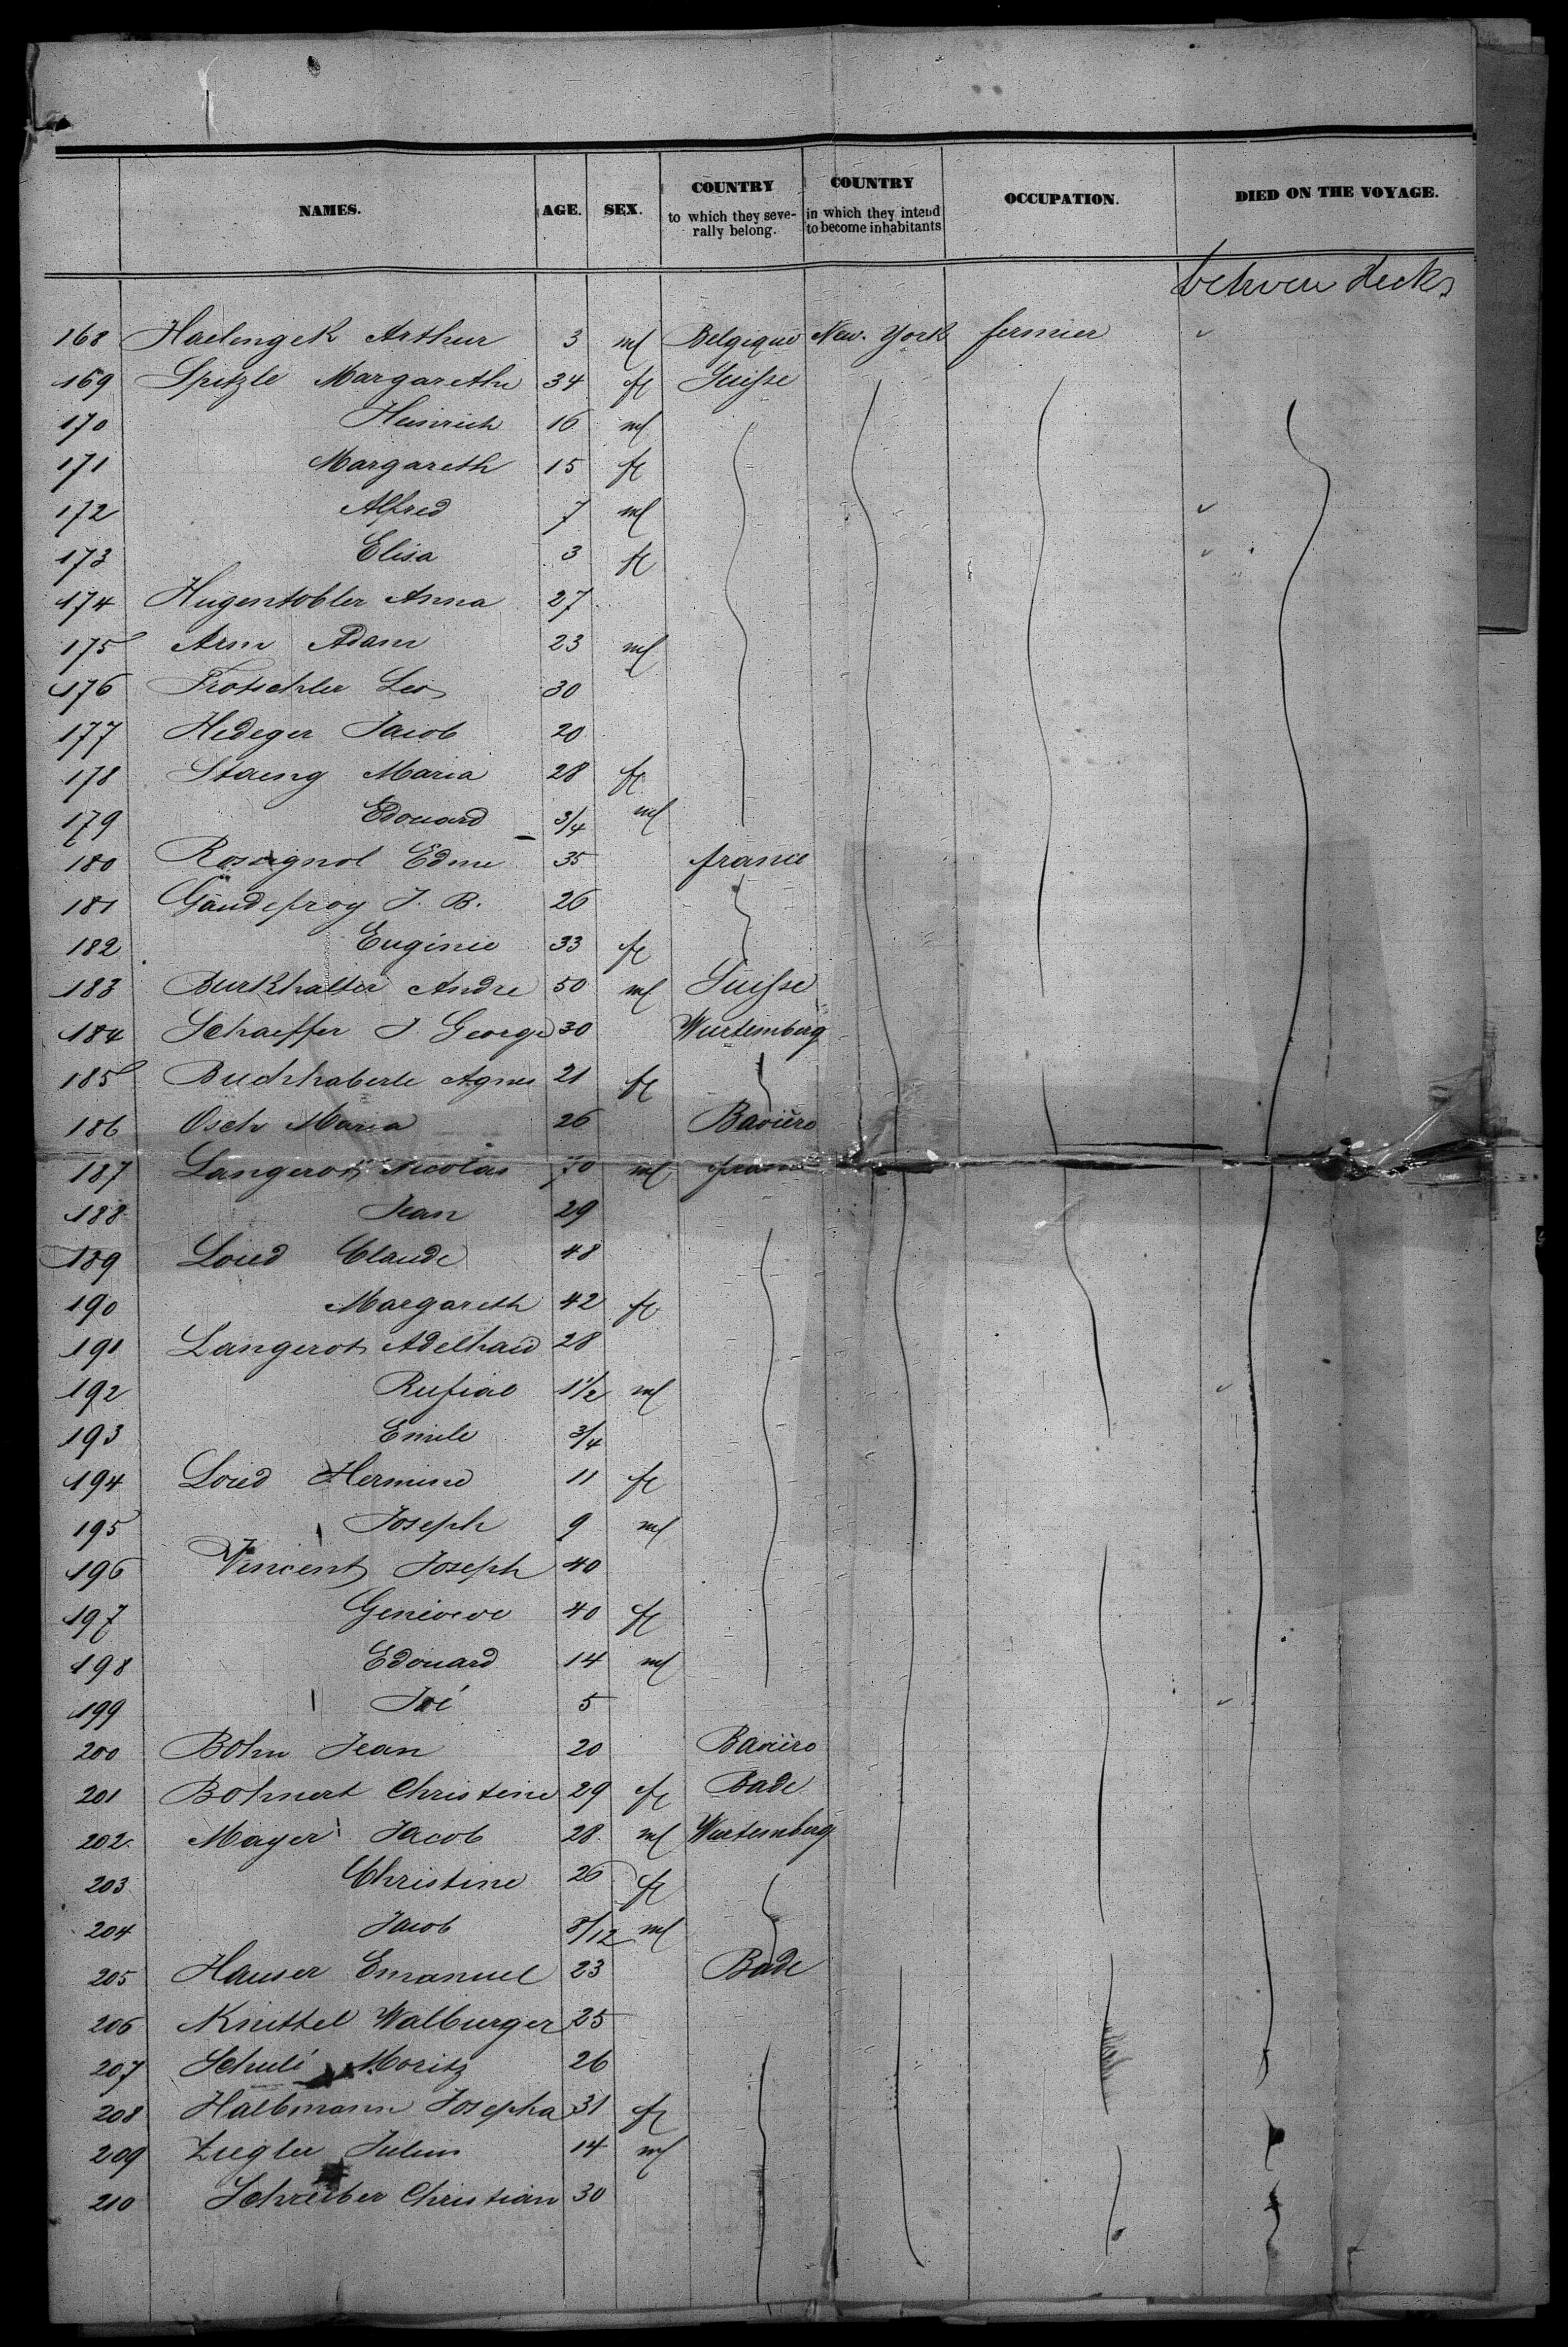 NAMES. AGE. SEX. COUNTRY to which they seve- rally belong. COUNTRY in which they intend to become inhabitants OCCUPATION. DIED ON THE VOYAGE.
between decks
168 Haelengek Arthur 3 m Belgique New-York fermier
169 Spitzle Margarethe 34 f Suisse
170 Heinrich 16 m
171 Margareth 15 f
172 Alfred 7 m
173 Elisa 3 f
174 Hugentobler Anna 27
175 Arm Adam 23 m
176 Trotschler Leo 30
177 Hedeger Jacob 20
178 Staeng Maria 28 f
179 Edouard 3/4 m
180 Rossignol Edme 35 france
181 Gaudefroy J. B. 26
182 Euginie 33 f
183 Burkhalter Andre 50 m Suisse
184 Schaeffer J George 30 Wurtemberg
185 Buchhaberle Agnes 21 f
186 Osch Maria 26 Bavière
187 Langerot Nicolas 70 m france
188 Jean 29
189 Loued Claude 48
190 Margareth 42 f
191 Langerot Adelhaid 28
192 1 1/2 m
193 Emile 3/4
194 Loued Hermine 11 f
195 Joseph 9 m
196 Vincent Joseph 40
197 Genevieve 40 f
198 Edouard 14 m
199 5
200 Bohn Jean 20 Bavière
201 Bohnert Christine 29 f Bade
202 Mayer Jacob 28 m Wurtemberg
203 Christine 26 f
204 Jacob 8/12 m
205 Hauser Emanuel 23 Bade
206 Knittel Walburger 25
207 Schulé Moritz 26
208 Halbmann Josepha 31 f
209 Ziegler Julius 14 m
210 Schreiber Christian 30